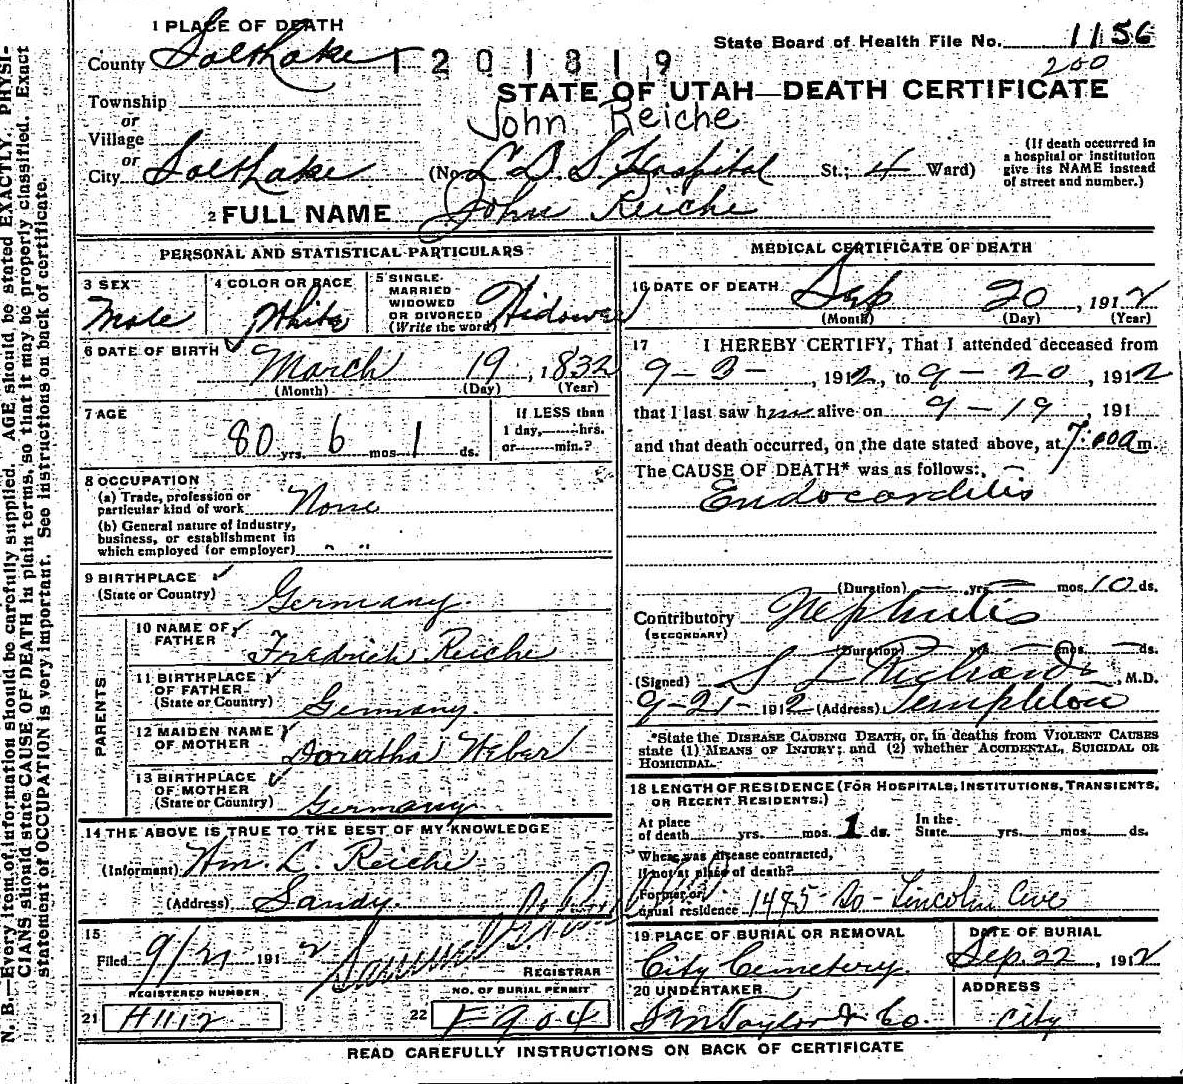 N. B.—Every item of information should be carefully supplied. AGE should be stated EXACTLY. PHYSI-
CIANS should state CAUSE OF DEATH in plain terms, so that it may be properly classified. Exact
statement of OCCUPATION is very important. See instructions on back of certificate.
1 PLACE OF DEATH
State Board of Health File No. 1156
County Salt Lake
1201819
200
STATE OF UTAH—DEATH CERTIFICATE
Township
or
John Reiche
Village
or
City Salt Lake (No. L D S Hospital St.; 4 Ward)
(If death occurred in
a hospital or institution
give its NAME instead
of street and number.)
2 FULL NAME John Reiche
PERSONAL AND STATISTICAL PARTICULARS
3 SEX
Male
4 COLOR OR RACE
White
5 SINGLE
MARRIED
WIDOWED
OR DIVORCED
(Write the word)
Widower
6 DATE OF BIRTH
March 19, 1832
(Month) (Day) (Year)
7 AGE
80 yrs. 6 mos 1 ds.
If LESS than
1 day, hrs.
or min.?
8 OCCUPATION
(a) Trade, profession or
particular kind of work None
(b) General nature of industry,
business, or establishment in
which employed (or employer) " "
9 BIRTHPLACE
(State or Country) Germany
PARENTS
10 NAME OF
FATHER
Fredrich Reiche
11 BIRTHPLACE
OF FATHER
(State or Country) Germany
12 MAIDEN NAME
OF MOTHER Doratha Weber
13 BIRTHPLACE
OF MOTHER
(State or Country) Germany
14 THE ABOVE IS TRUE TO THE BEST OF MY KNOWLEDGE
(Informant) Wm. L. Reiche
(Address) Sandy.
15
Filed 9/21 1912
REGISTRAR
REGISTERED NUMBER
21 H1112
NO. OF BURIAL PERMIT
22 F904
MEDICAL CERTIFICATE OF DEATH
16 DATE OF DEATH
Sep 20, 1912
(Month) (Day) (Year)
17 I HEREBY CERTIFY, That I attended deceased from
9-3-, 1912, to 9-20, 1912
that I last saw him alive on 9-19, 191
and that death occurred, on the date stated above, at 7:00 a m.
The CAUSE OF DEATH* was as follows:
Endocarditis
(Duration) — yrs. — mos. 10 ds.
Contributory Nephritis
(SECONDARY)
(Duration) — yrs — mos. — ds.
(Signed) S L Richards, M.D.
9-21- 1912 (Address) Templeton
*State the DISEASE CAUSING DEATH, or, in deaths from VIOLENT CAUSES
state (1) MEANS OF INJURY; and (2) whether ACCIDENTAL, SUICIDAL OR
HOMICIDAL.
18 LENGTH OF RESIDENCE (FOR HOSPITALS, INSTITUTIONS, TRANSIENTS,
OR RECENT RESIDENTS.)
At place
of death yrs. mos. 1 ds.
In the
State yrs. mos. ds.
Where was disease contracted,
if not at place of death?
Former or
usual residence 1475 So - Lincoln Ave
19 PLACE OF BURIAL OR REMOVAL
City Cemetery.
DATE OF BURIAL
Sep. 22, 1912
20 UNDERTAKER
S M Taylor & Co.
ADDRESS
City
READ CAREFULLY INSTRUCTIONS ON BACK OF CERTIFICATE